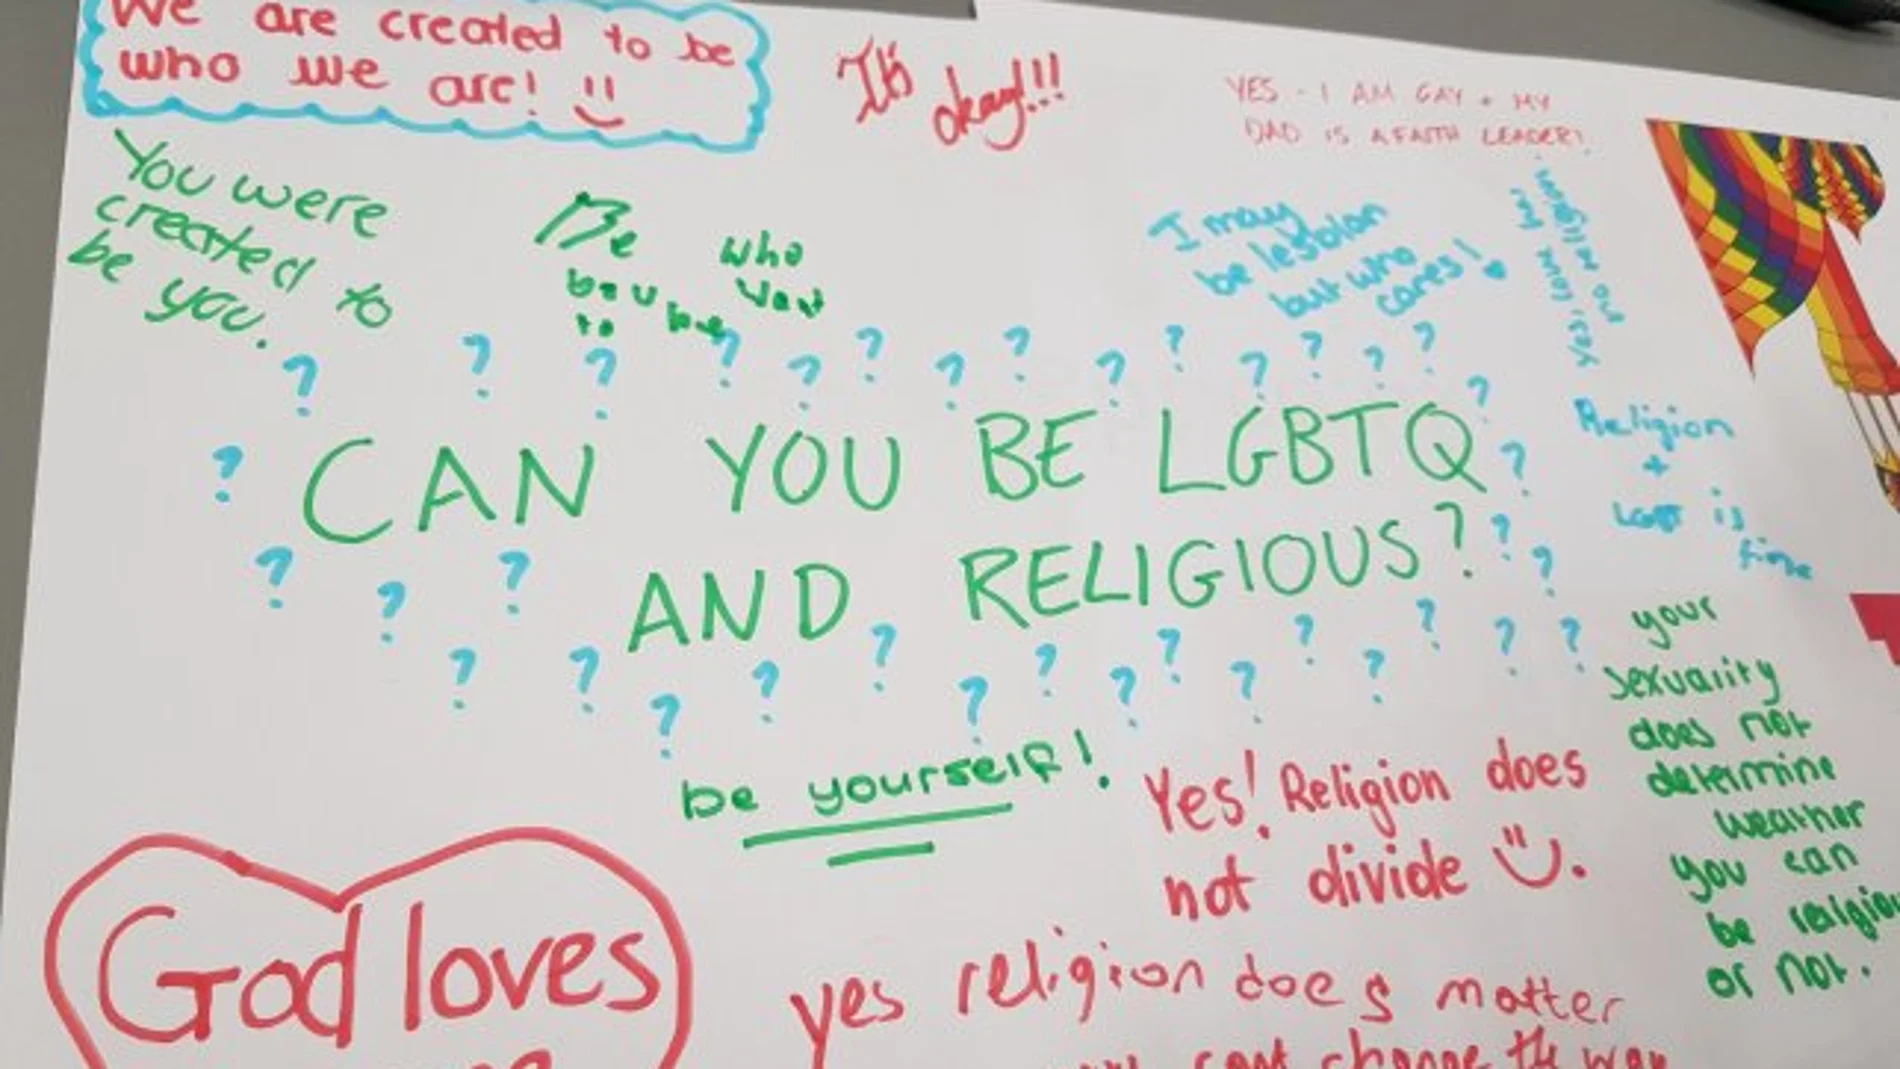 We are created to be
who we are!
It's
okay!!!
YES - I AM GAY + MY
DAD IS A FAITH LEADER!
You were
created to
be you.
Be who
you want
to be
I may
be lesbian
but who
cares!
Yes! I can
Religion
+
LGBT is
fine
? ? ? ? ? ? ? ? ? ? ? ? ? ?
CAN YOU BE LGBTQ
AND RELIGIOUS?
? ? ? ? ? ? ? ? ? ? ? ? ? ?
your
sexuality
does not
determine
weather
you can
be religio
or not.
be yourself!
Yes! Religion does
not divide
God loves
yes religion does matter
cant change the way